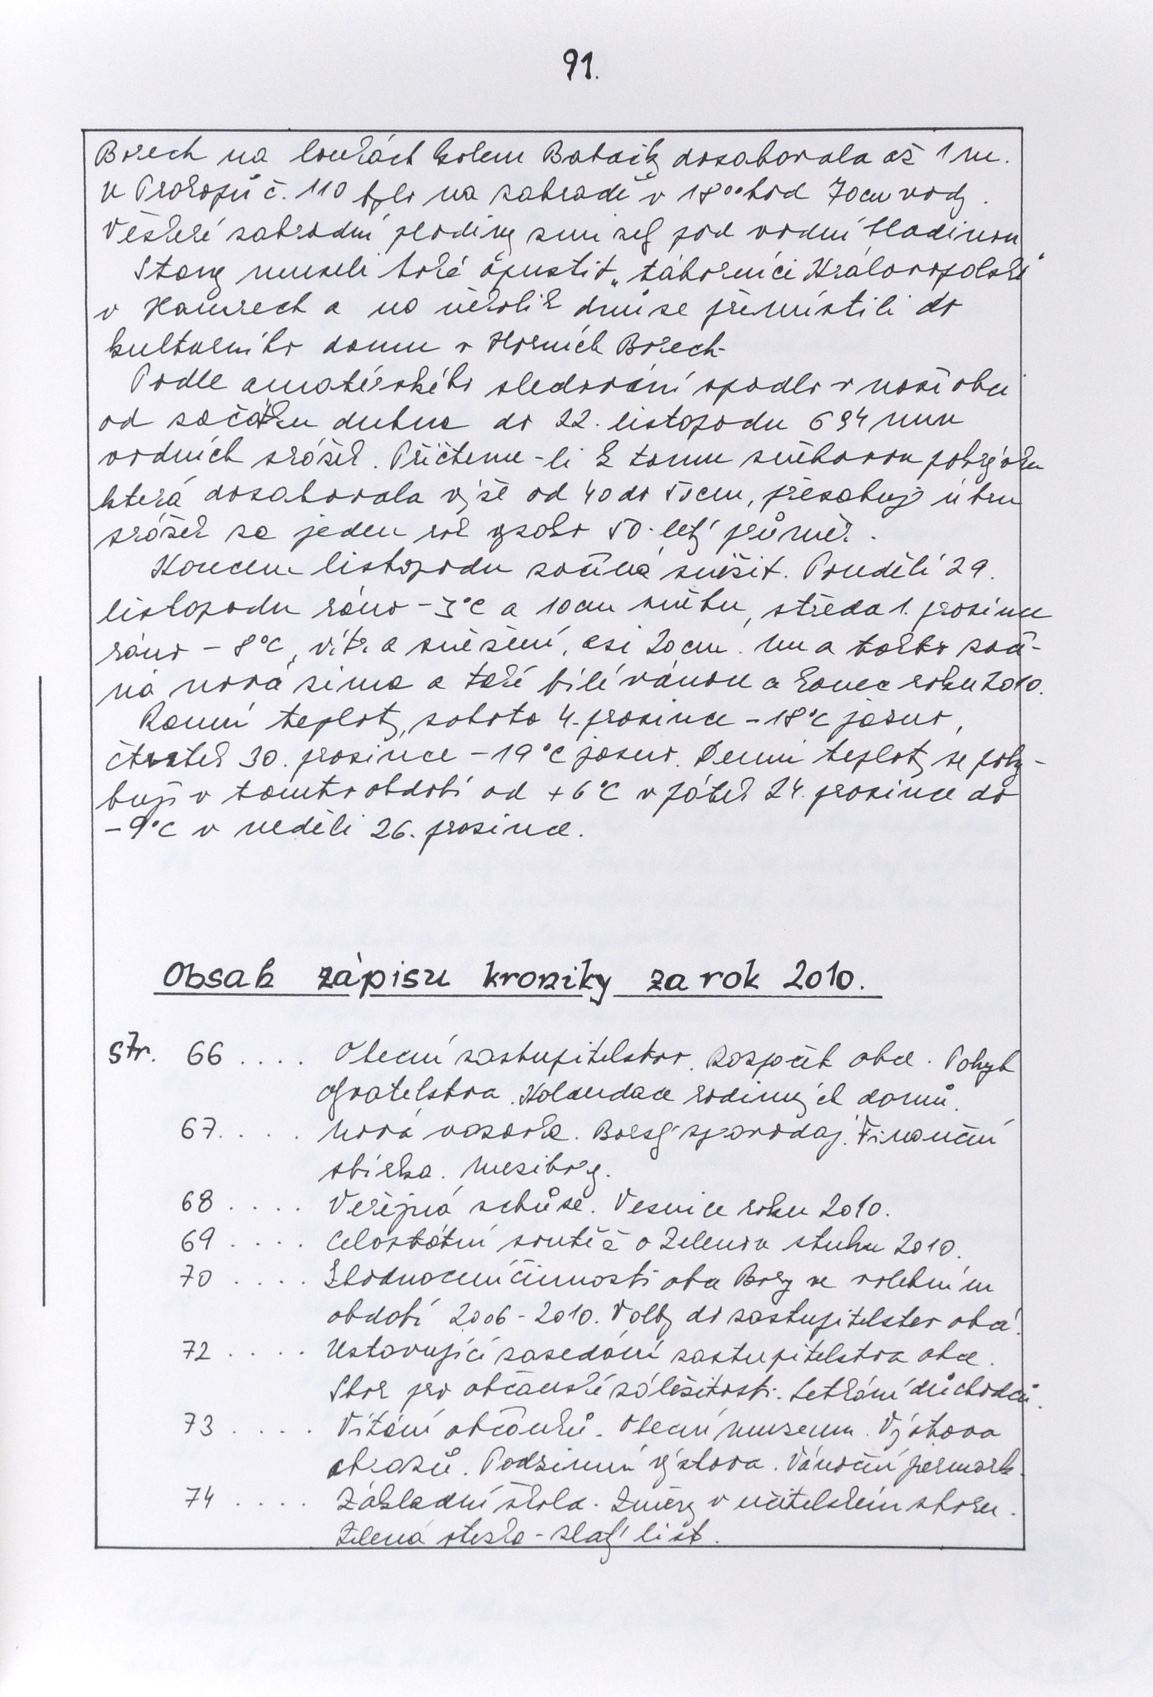 91.
Borech na loukách kolem Babačky dosahovala až 1 m.
U Prokopů č. 110 bylo na zahradě v 18⁰⁰ hod 70 cm vody.
Veškeré zahradní plodiny zmizely pod vodní hladinou
Stany museli také opustit „táborníci Královopolské“
v Hamrech a na několik dnů se přemístili do
kulturního domu v Horních Borech.
Podle amatérského sledování spadlo v naší obci
od začátku dubna do 22. listopadu 694 mm
vodních srážek. Přičteme-li k tomu sněhovou pokrývku
která dosahovala výše od 40 do 50 cm, přesahují úhrn
srážek za jeden rok vysoko 50-letý průměr.
Koncem listopadu začíná sněžit. Pondělí 29.
listopadu ráno -3°C a 10 cm sněhu, středa 1. prosince
ráno - 8°C, vítr a sněžení, asi 20 cm. No a takto začí-
ná nová zima a také bílé vánoce a konec roku 2010.
Ranní teploty, sobota 4. prosince - 18°C jasno,
čtvrtek 30. prosince - 19°C jasno. Denní teploty se pohy-
bují v tomto období od +6°C v pátek 24. prosince do
-9°C v neděli 26. prosince.
Obsah zápisu kroniky za rok 2010.
str. 66 .... Obecní zastupitelstvo. Rozpočet obce. Pohyb
obyvatelstva. Kolaudace rodinných domů.
67. ... Nová vozovka. Borský zpravodaj. Finanční
sbírka. Mezibory.
68 .... Veřejná schůze. Vesnice roku 2010.
69 .... Celostátní soutěž o Zelenou stuhu 2010.
70 .... Zhodnocení činnosti obce Bory ve volebním
období 2006 - 2010. Volby do zastupitelstev obcí.
72 .... Ustavující zasedání zastupitelstva obce.
Sbor pro občanské záležitosti. Setkání důchodců.
73 .... Vítání občánků. Obecní muzeum. Výstava
obrazů. Podzimní výstava. Vánoční jarmark.
74 .... Základní škola. Změny v učitelském sboru.
Zelená stezka - zlatý list.